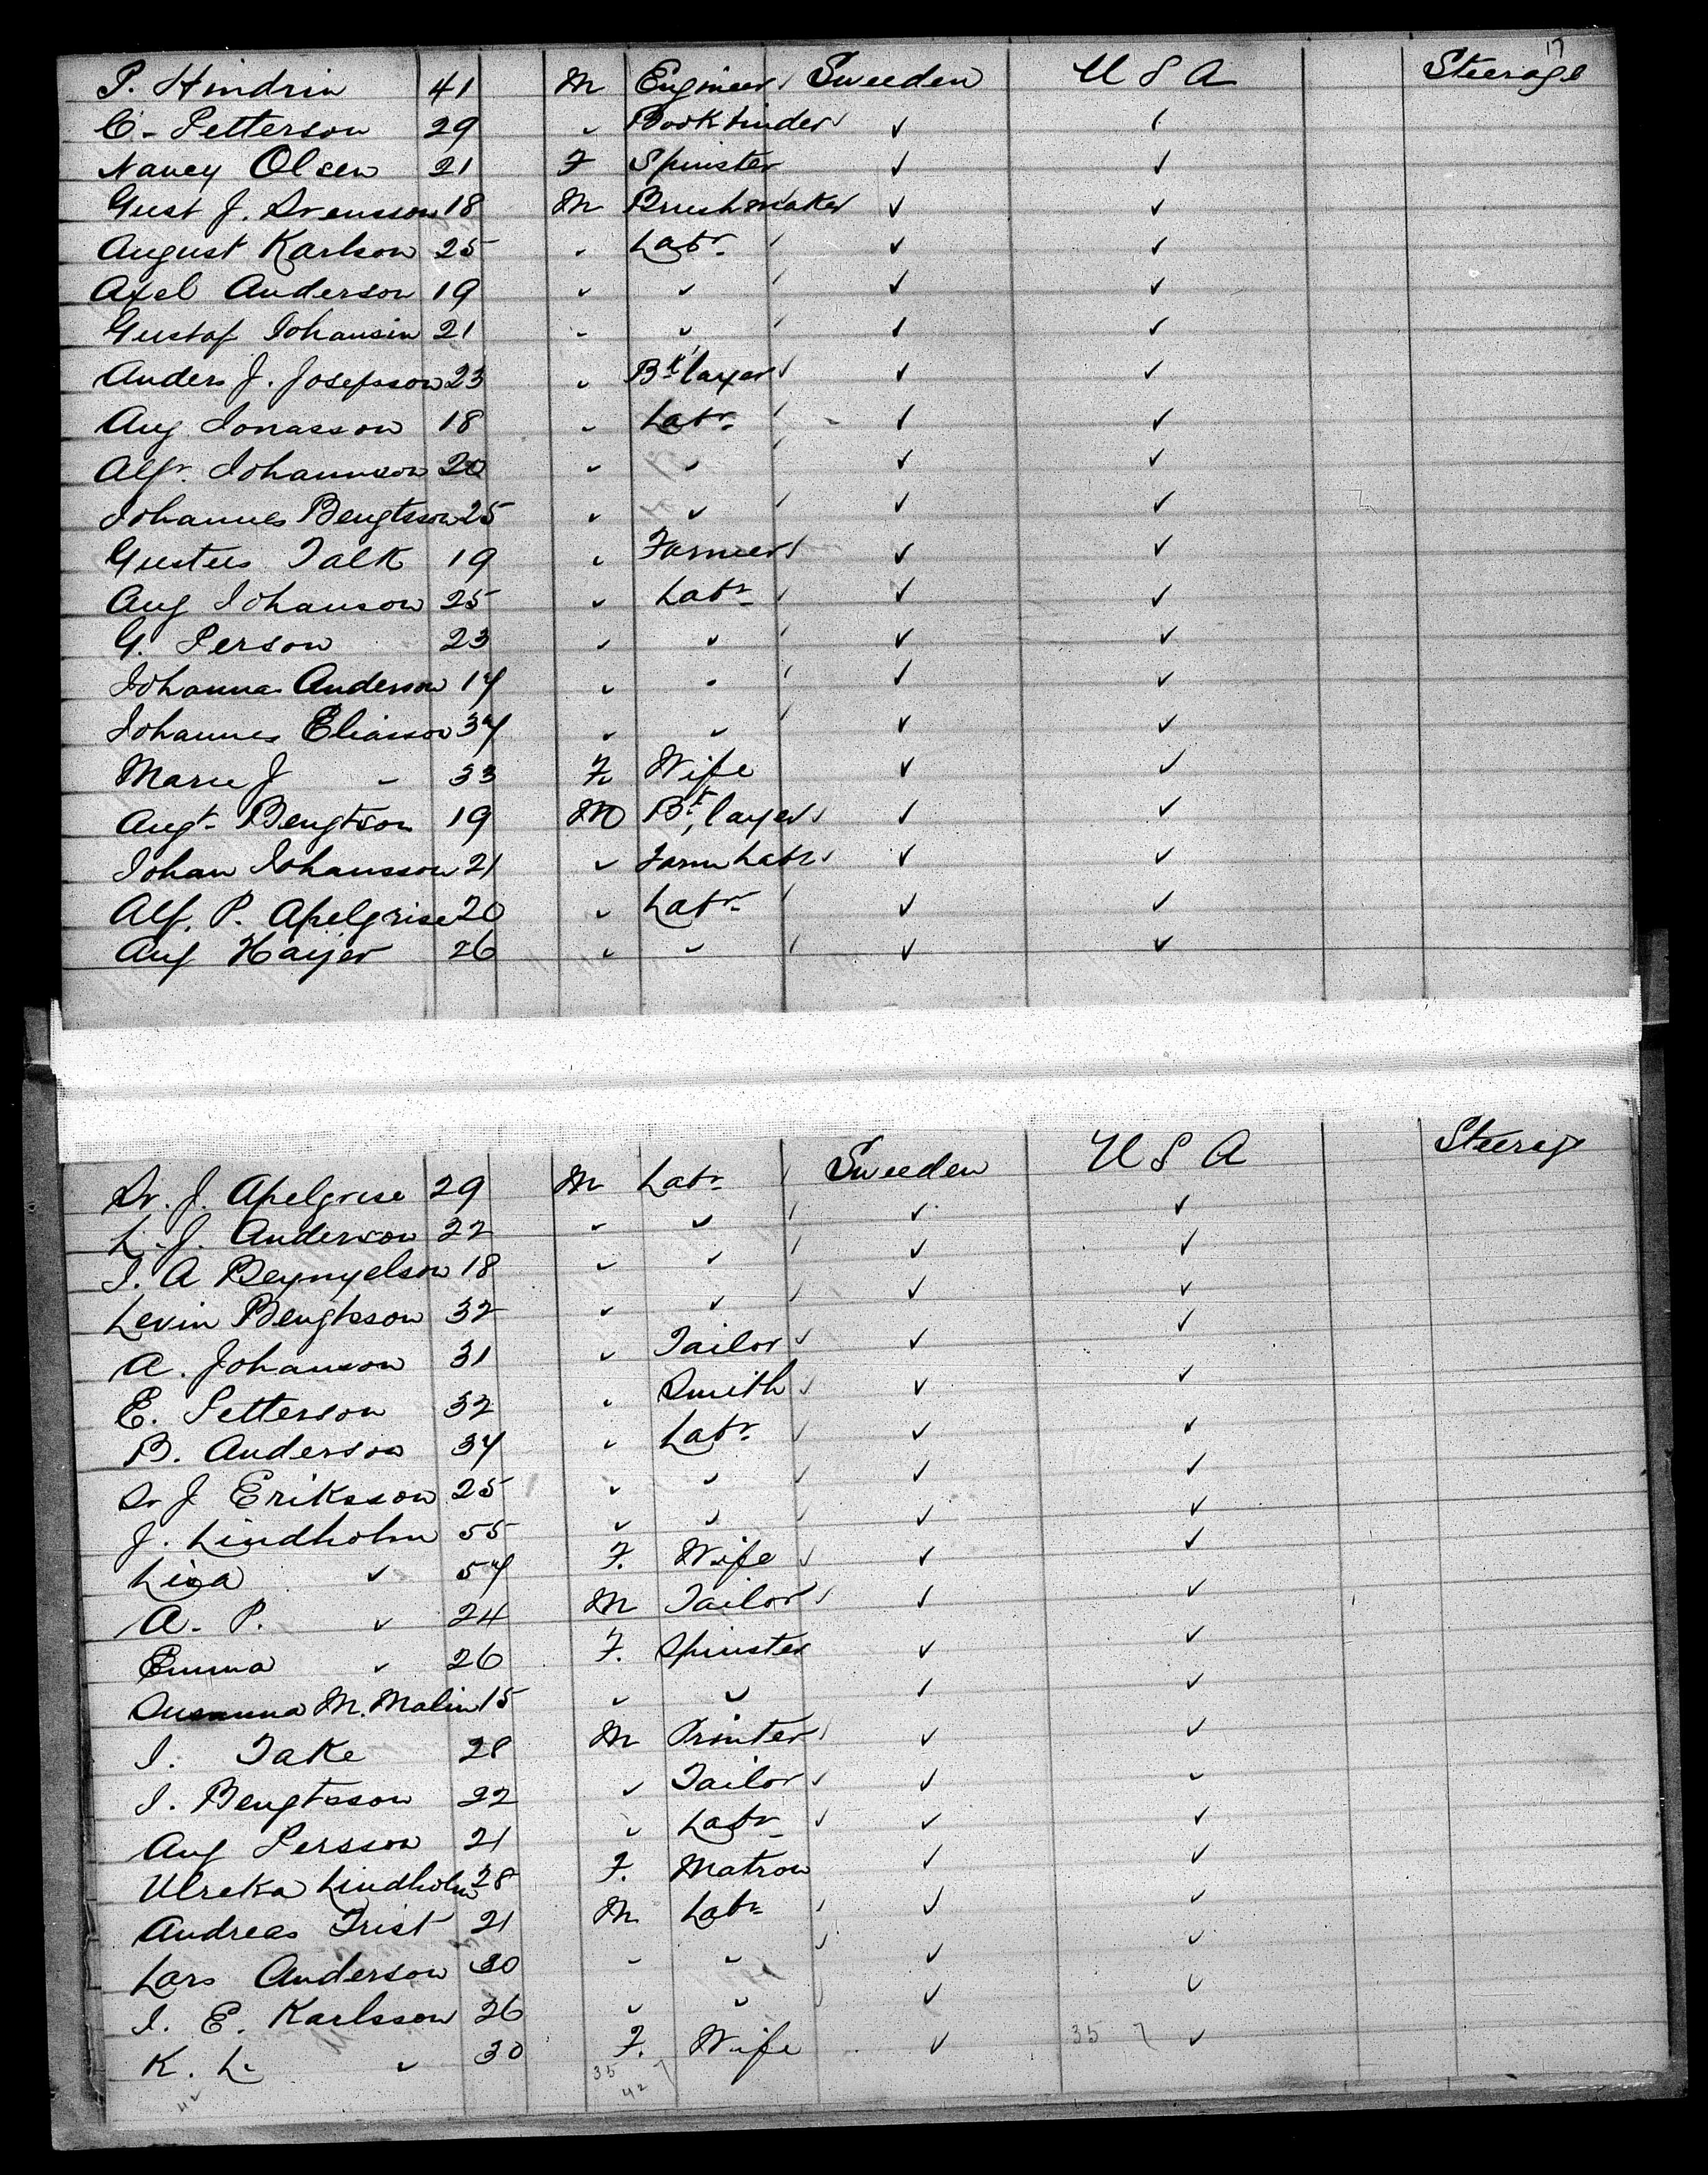 17
P. Hindrin 41 M Engineer Sweeden U S A Steerage
C. Petterson 29 " Bookbinder ✓ ✓
Nancy Olsen 21 F Spinster ✓ ✓
Gust J. Svensson 18 M Brushmaker ✓ ✓
August Karlson 25 " Labr ✓ ✓
Axel Anderson 19 " " ✓ ✓
Gustaf Johansin 21 " " ✓ ✓
Anders J. Josefsson 23 " Bk layer ✓ ✓
Aug Jonasson 18 " Labr ✓ ✓
Alfr. Johannson 20 " " ✓ ✓
Johannes Bengtsson 25 " " ✓ ✓
Gustus Falk 19 " Farmer ✓ ✓
Aug Johanson 25 " Labr ✓ ✓
G. Person 23 " " ✓ ✓
Johanna Anderson 14 " " ✓ ✓
Johannes Eliasson 34 " " ✓ ✓
Marie J " 33 F. Wife ✓ ✓
Augt Bengtson 19 M Bk layer ✓ ✓
Johan Johansson 21 " Farm Labr ✓ ✓
Alf. P. Apelgrise 20 " Labr ✓ ✓
Aug Hayer 26 " " ✓ ✓
Sv. J. Apelgrise 29 M Labr Sweeden U S A Steerage
L. J. Anderson 22 " " ✓ ✓
J. A Beynyelson 18 " " ✓ ✓
Levin Bengtsson 32 " " ✓ ✓
A. Johanson 31 " Tailor ✓ ✓
E. Petterson 32 " Smith ✓ ✓
B. Anderson 34 " Labr ✓ ✓
Sv J Eriksson 25 " " ✓ ✓
J. Lindholm 55 " " ✓ ✓
Lisa " 54 F. Wife ✓ ✓
A. P. " 24 M Tailor ✓ ✓
Emma " 26 F. Spinster ✓ ✓
Susanna M. Malin 15 " " ✓ ✓
J. Take 28 M Printer ✓ ✓
J. Bengtsson 22 " Tailor ✓ ✓
Aug Persson 21 " Labr ✓ ✓
Ulreka Lindholm 28 F. Matron ✓ ✓
Andreas Frist 21 M Labr ✓ ✓
Lars Anderson 30 " " ✓ ✓
J. E. Karlsson 26 " " ✓ ✓
K. L. " 30 F. Wife ✓ 35 7 ✓
42 35 42 7